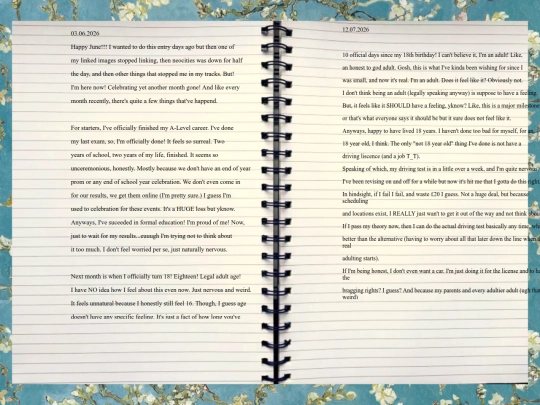 03.06.2026
Happy June!!! I wanted to do this entry days ago but then one of
my linked images stopped linking, then neocities was down for half
the day, and then other things that stopped me in my tracks. But!
I'm here now! Celebrating yet another month gone! And like every
month recently, there's quite a few things that've happend.
For starters, I've officially finished my A-Level career. I've done
my last exam, so, I'm officially done! It feels so surreal. Two
years of school, two years of my life, finished. It seems so
unceremonious, honestly. Mostly because we don't have an end of year
prom or any end of school year celebration. We don't even come in
for our results, we get them online (I'm pretty sure.) I guess I'm
used to celebration for these events. It's a HUGE loss but yknow.
Anyways, I've suceeded in formal education! I'm proud of me! Now,
just to wait for my results...euuugh I'm trying not to think about
it too much. I don't feel worried per se, just naturally nervous.
Next month is when I officially turn 18! Eighteen! Legal adult age!
I have NO idea how I feel about this even now. Just nervous and weird.
It feels unnatural because I honestly still feel 16. Though, I guess age
doesn't have any specific feeling. It's just a fact of how long you've
12.07.2026
10 official days since my 18th birthday! I can't believe it, I'm an adult! Like,
an honest to god adult. Gosh, this is what I've kinda been wishing for since I
was small, and now it's real. I'm an adult. Does it feel like it? Obviously not.
I don't think being an adult (legally speaking anyway) is suppose to have a feeling.
But, it feels like it SHOULD have a feeling, yknow? Like, this is a major milestone
or that's what everyone says it should be but it sure does not feel like it.
Anyways, happy to have lived 18 years. I haven't done too bad for myself, for an
18 year old, I think. The only "not 18 year old" thing I've done is not have a
driving liscence (and a job T_T).
Speaking of which, my driving test is in a little over a week, and I'm quite nervous
I've been revising on and off for a while but now it's hit me that I gotta do this right
In hindsight, if I fail I fail, and waste £20 I guess. Not a huge deal, but because
scheduling
and locations exist, I REALLY just wan't to get it out of the way and not think
If I pass my theory now, then I can do the actual driving test basically any time,
better than the alternative (having to worry about all that later down the line when
real
adulting starts).
If I'm being honest, I don't even want a car. I'm just doing it for the license and to
the
bragging rights? I guess? And because my parents and every adultier adult (ugh that
weird)